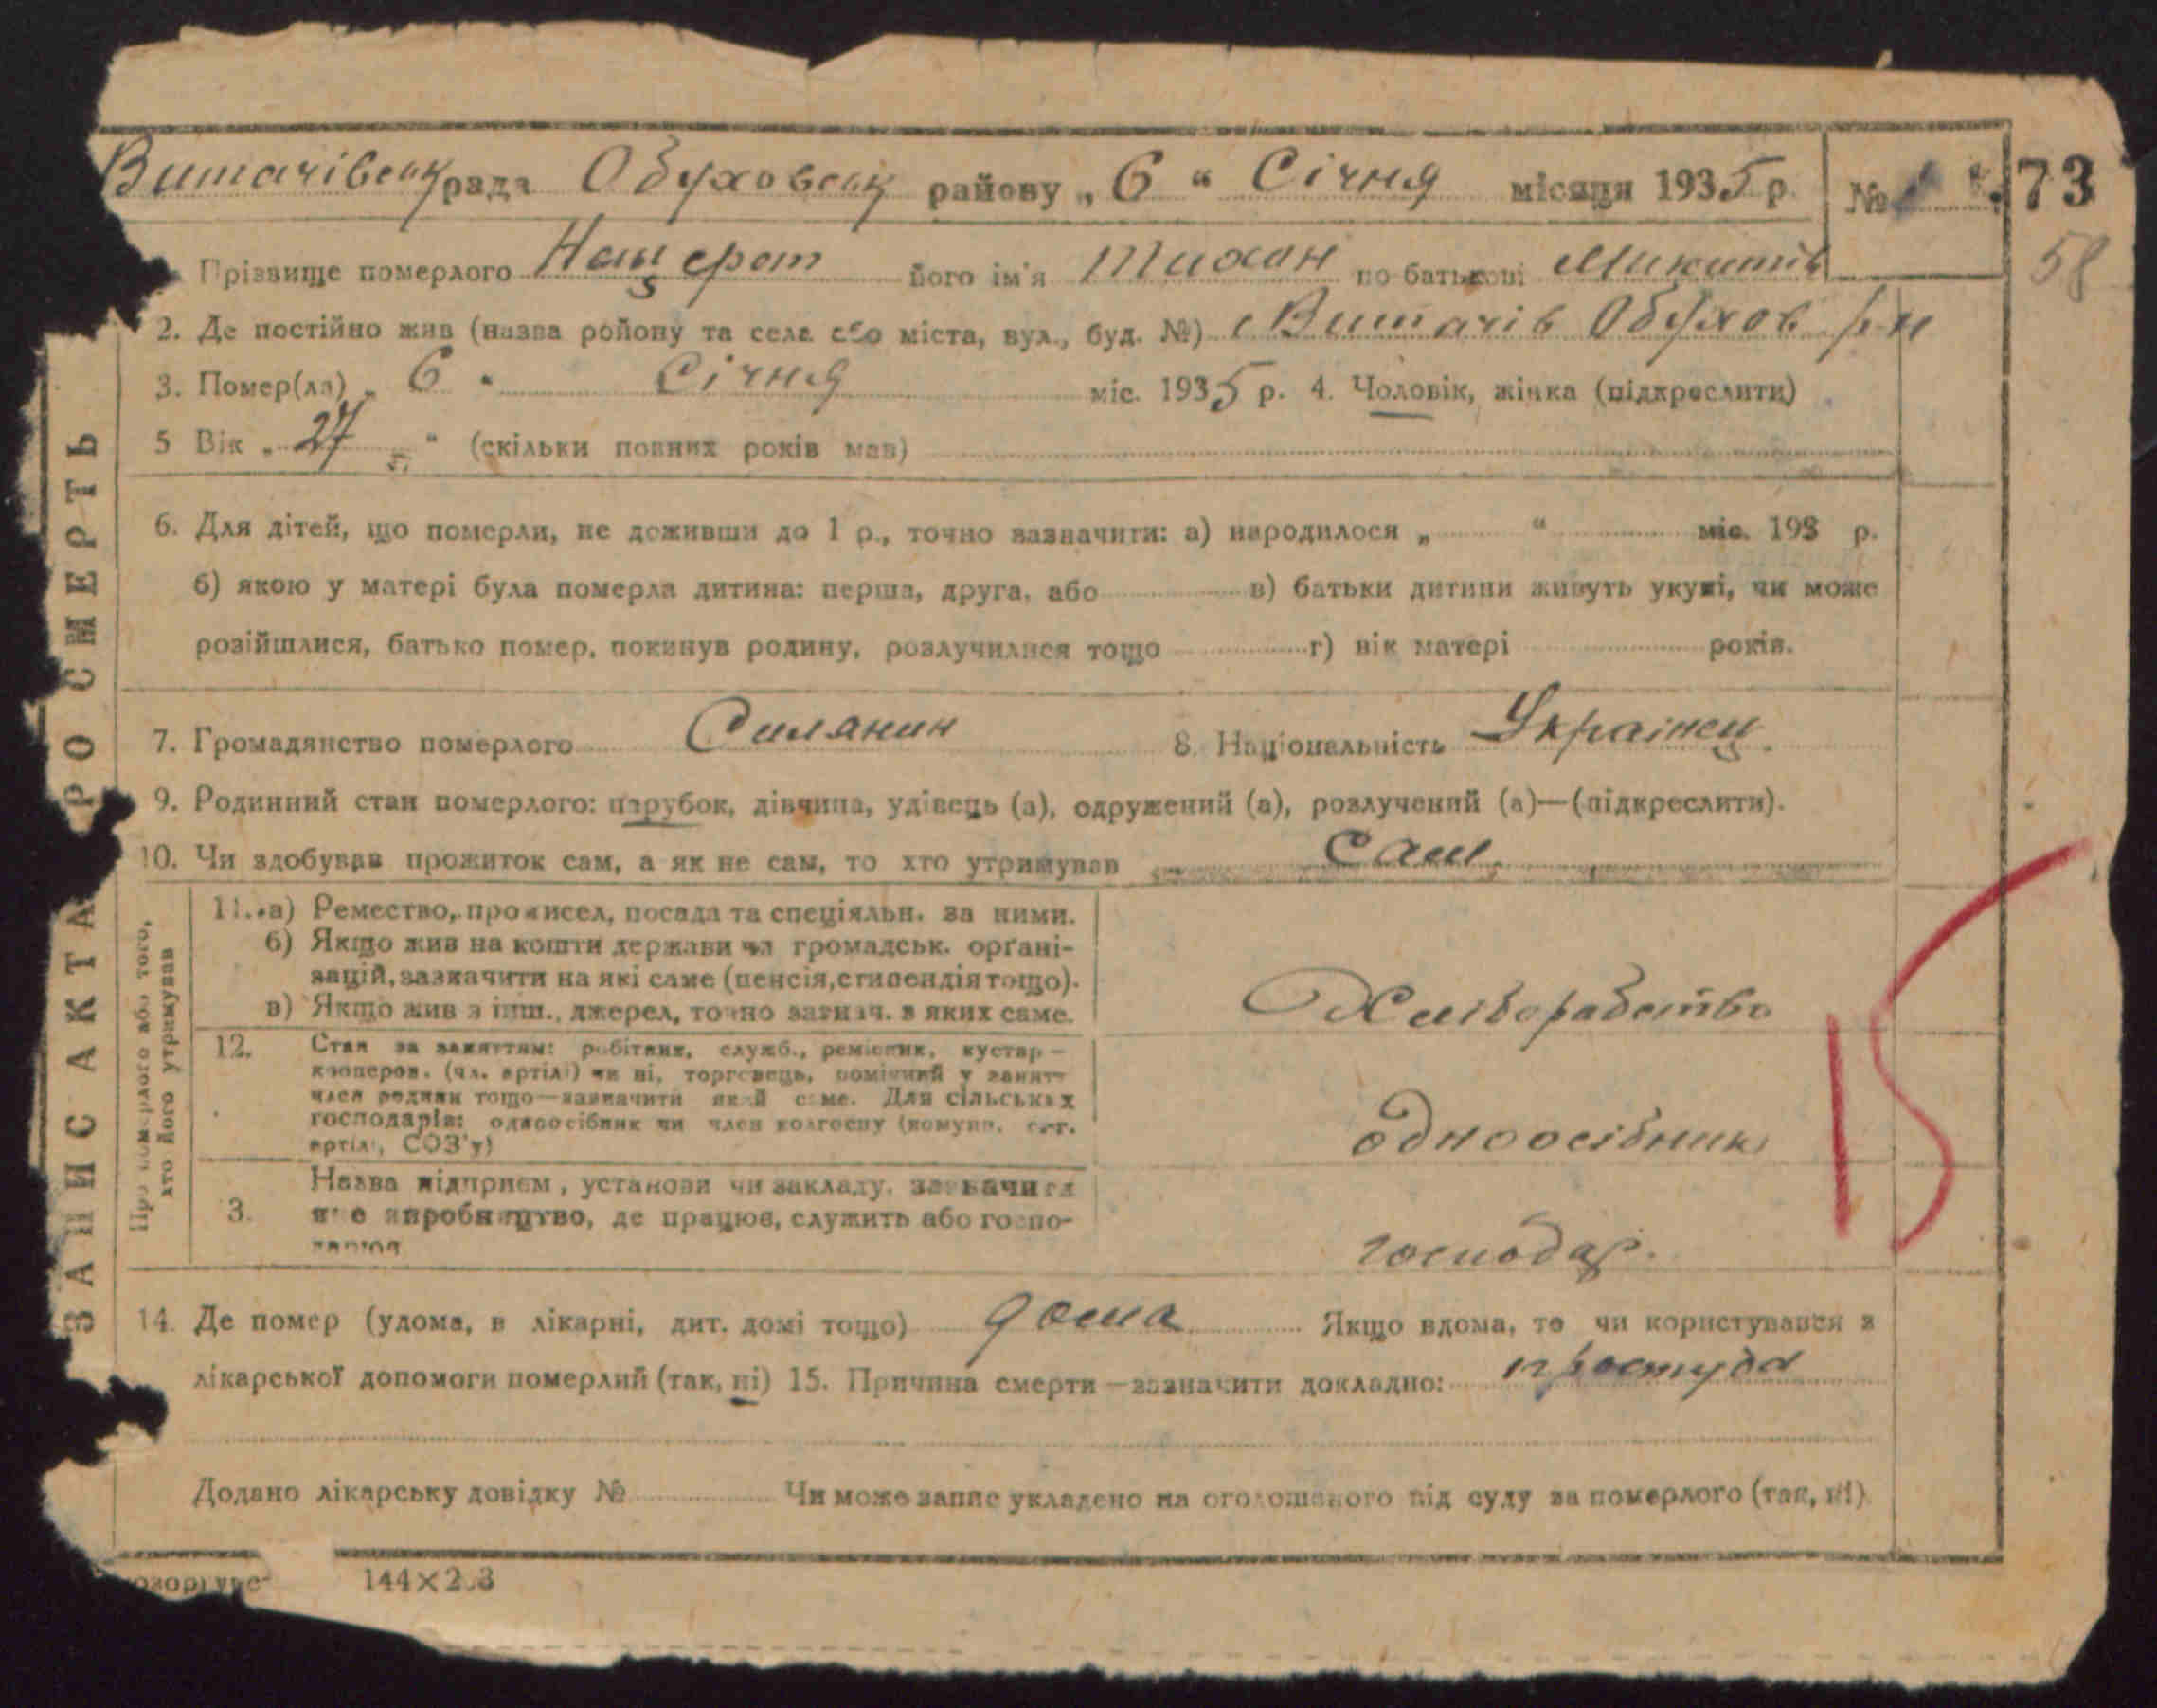 Витачівськ рада Обуховськ району „6“ Січня місяця 1935 р. № 73
58
Прізвище померлого його ім'я Тихон по батькові Микитів
2. Де постійно жив (назва ройону та села або міста, вул., буд. №) с Витачів Обухов р-н
3. Помер(ла) „6“ Січня міс. 1935 р. 4. Чоловік, жінка (підкреслити)
5 Вік „27 р.“ (скільки повних років мав)
6. Для дітей, що померли, не доживши до 1 р., точно зазначити: а) народилося „ “ міс. 193 р.
б) якою у матері була померла дитина: перша, друга, або в) батьки дитини живуть укупі, чи може
розійшлися, батько помер, покинув родину, розлучилися тощо г) вік матері років.
7. Громадянство померлого Силянин 8. Національність Українец.
9. Родинний стан померлого: парубок, дівчина, удівець (а), одружений (а), розлучений (а)—(підкреслити).
10. Чи здобував прожиток сам, а як не сам, то хто утримував сам.
Про померлого або того,
хто його утримував
11. а) Ремество, промисел, посада та спеціяльн. за ними.
б) Якщо жив на кошти держави чи громадськ. орґані-
зацій, зазначити на які саме (пенсія, стипендія тощо).
в) Якщо жив з інш., джерел, точно зазнач. з яких саме.
Хліборабство
12. Стан за заняттям: робітник, служб., ремісник, кустар—
кооперов. (чл. артілі) чи ні, торговець, помічний у занят-
член родини тощо—зазначити який саме. Для сільських
господарів: одноосібник чи член колгоспу (комуни, с.-г.
артілі, СОЗ'у)
одноосібник
3. Назва підприєм, установи чи закладу, зазначити
яке виробництво, де працює, служить або госпо-
дарює
господар.
15
14. Де помер (удома, в лікарні, дит. домі тощо) дома Якщо вдома, то чи користувався з
лікарської допомоги померлий (так, ні) 15. Причина смерти—зазначити докладно: простуда
Додано лікарську довідку № Чи може запис укладено на оголошеного від суду за померлого (так, ні).
144×2.3
ЗАПИС АКТА РО СМЕРТЬ